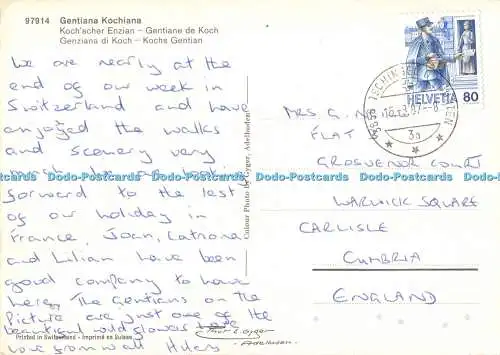 97914 Gentiana Kochiana
Koch'scher Enzian – Gentiane de Koch
Genziana di Koch – Kochs Gentian
We are nearly at the
end of our week in
Switzerland and have
enjoyed the walks
and scenery very
forward to the rest
of our holiday in
France, Joan, Catriona
and Lilian have been
good company to have
here. The Gentians on the
Picture are just one of the
beautiful wild flowers
love from all
Printed in Switzerland - Imprimé en Suisse
Colour Photo by Gyger, Adelboden
Thor E. Gyger
- Adelboden -
HELVETIA 80
3a
Mrs G.
FLAT
GROSVENOR COURT
WARWICK SQUARE
CARLISLE
CUMBRIA
ENGLAND
Dodo-Postcards Dodo-Postcards Dodo-Postcards Dodo-Postcards Dodo-Postcards Dodo-Postcards